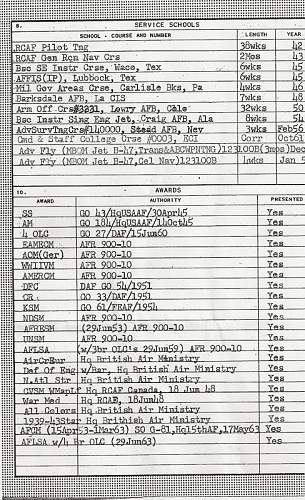 8. SERVICE SCHOOLS
SCHOOL - COURSE AND NUMBER LENGTH YEAR
RCAF Pilot Tng 38wks 42
RCAF Gen Rqn Nav Crs 2Mos 43
Bsc SE Instr Crse, Waco, Tex 6wks 45
AFFIS(IP), Lubbock, Tex 6wks 45
Mil Gov Areas Crse, Carlisle Bks, Pa 4wks 46
Barksdale AFB, La CIS 7wks 48
Arm Off Crs#3231, Lowry AFB, Colo 32wks 50
Bsc Instr Sing Eng Jet, Craig AFB, Ala 8wks 54
AdvSurvTngCrs#140000, Stead AFB, Nev 3wks Feb56
Cmd & Staff College Crse #0003, ECI Corr Oct61
Adv Fly (MBOM Jet B-47,Trans&ABCWPNTNG)123100B(3mos)Dec
Adv Fly (MBOM Jet B-47,Cel Nav)123100B 4wks Jan 5
10. AWARDS
AWARD AUTHORITY PRESENTED
SS GO 43/HqUSAAF/30Apr45 Yes
AM GO 184/HqUSAAF/14Oct45 Yes
4 OLC GO 27/DAF/15Jun60 Yes
EAMECM AFR 900-10 Yes
AOM(Ger) AFR 900-10 Yes
WWIIVM AFR 900-10 Yes
AMERCM AFR 900-10 Yes
DFC DAF GO 54/1951 Yes
CR GO 33/DAF/1951 Yes
KSM GO 61/FEAF/1954 Yes
NDSM AFR 900-10 Yes
AFRESM (29Jun53) AFR 900-10 Yes
UNSM AFR 900-10 Yes
AFLSA (w/3br OLC's 29Jun59) AFR 900-10 Yes
AirCrEur Hq British Air Ministry Yes
Def Of Eng w/Bar, Hq British Air Ministry Yes
N.Atl Str Hq British Air Ministry Yes
CVSM WMapLf Hq RCAF Canada, 18 Jun 48 Yes
War Med Hq RCAF, 18Jun48 Yes
All Colors Hq British Air Ministry Yes
1939-43Star Hq British Air Ministry Yes
AFGCM (15Apr53-1Mar63) SO G-81,Hq15thAF,17May63 Yes
AFLSA w/4 Br OLC (29Jun63) Yes